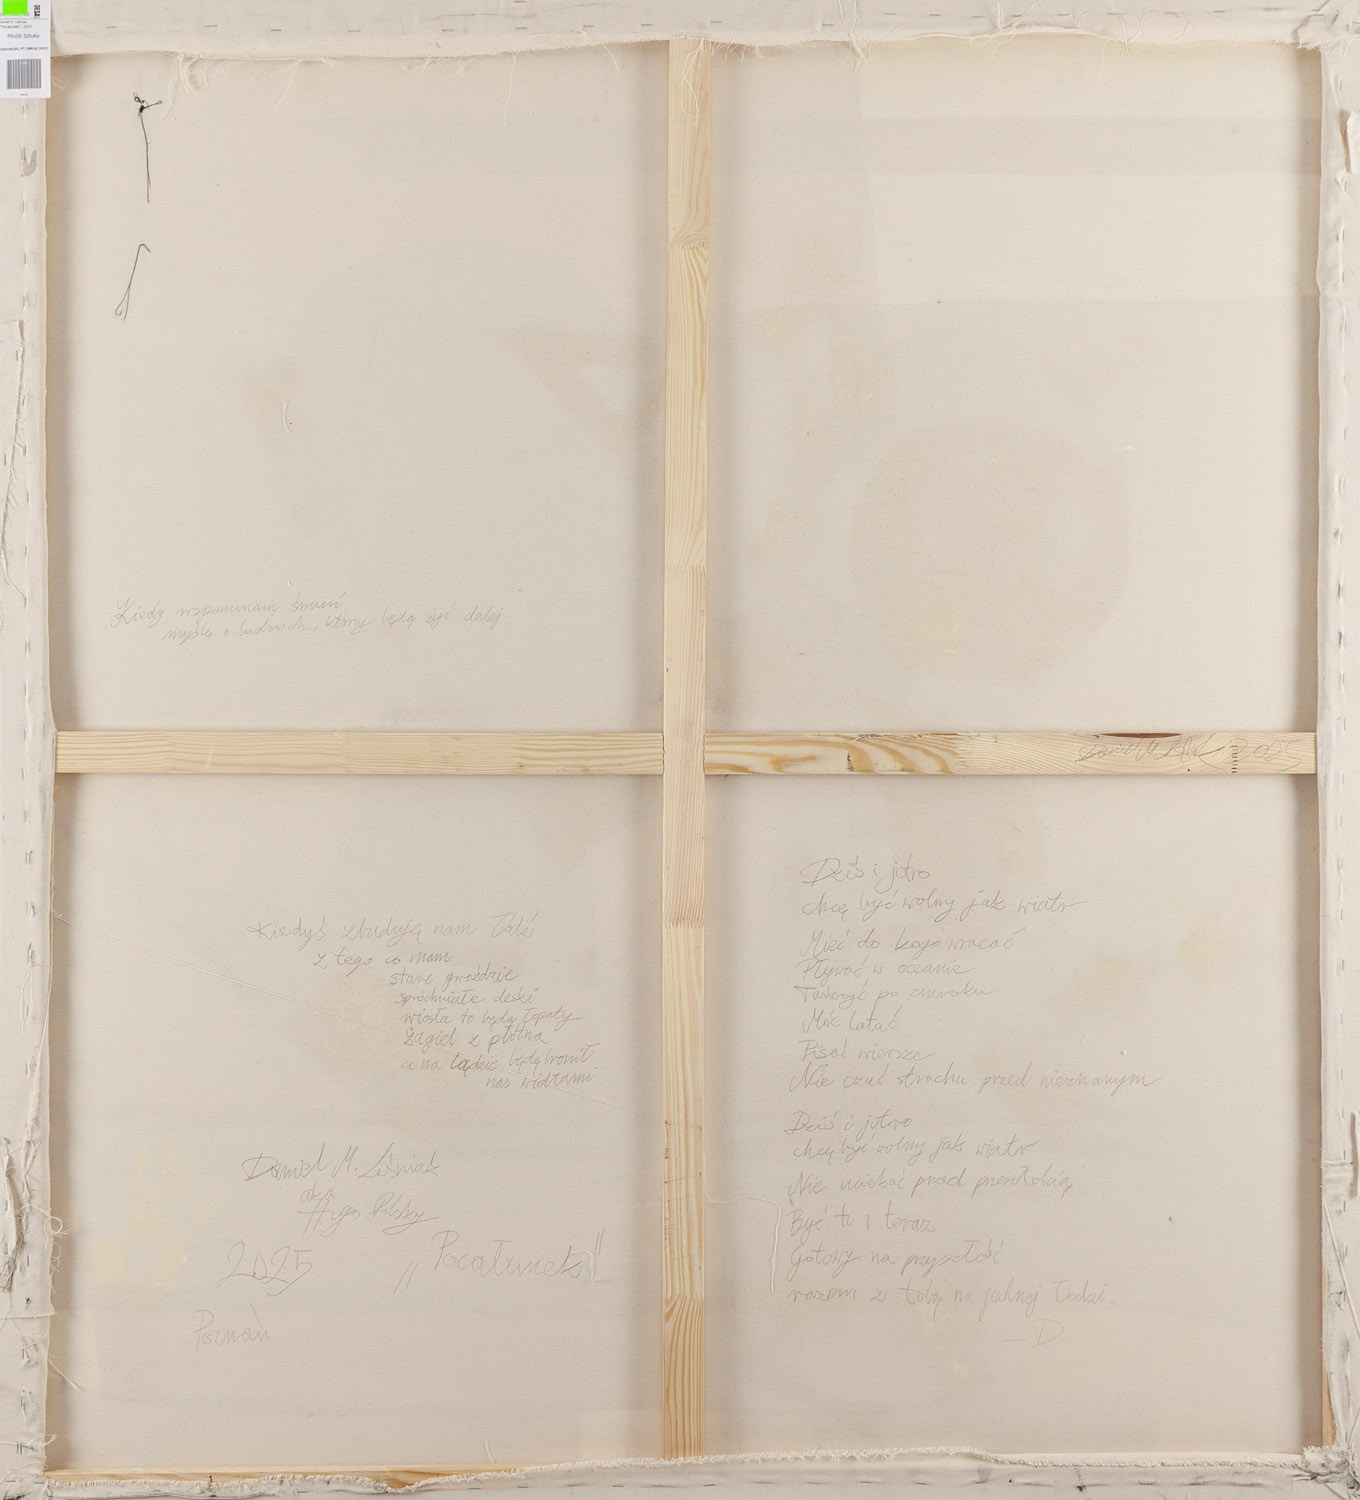 DESA
Młoda Sztuka
Kiedy wspominam śmierć
myślę o ludziach, którzy będą żyć dalej
Kiedyś zbuduję nam łódź
z tego co mam
stare gwoździe
spróchniałe deski
wiosła to będą łopaty
żagiel z płótna
a na lądzie będę bronił
nas widłami
Daniel M. Leśniak
aka
Hugo
2025
„Pocałunek"
Poznań
2025
Dziś i jutro
chcę być wolny jak wiatr
Mieć do kogo wracać
Pływać w oceanie
Tańczyć po zmroku
Móc latać
Pisać wiersze
Nie czuć strachu przed nieznanym
Dziś i jutro
chcę być wolny jak wiatr
Nie uciekać przed przeszłością
Być tu i teraz
Gotowy na przyszłość
razem z tobą na jednej łodzi.
– D